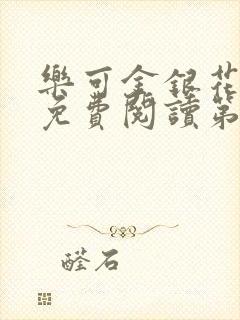 樂可金銀花
免費閱讀第
醛石